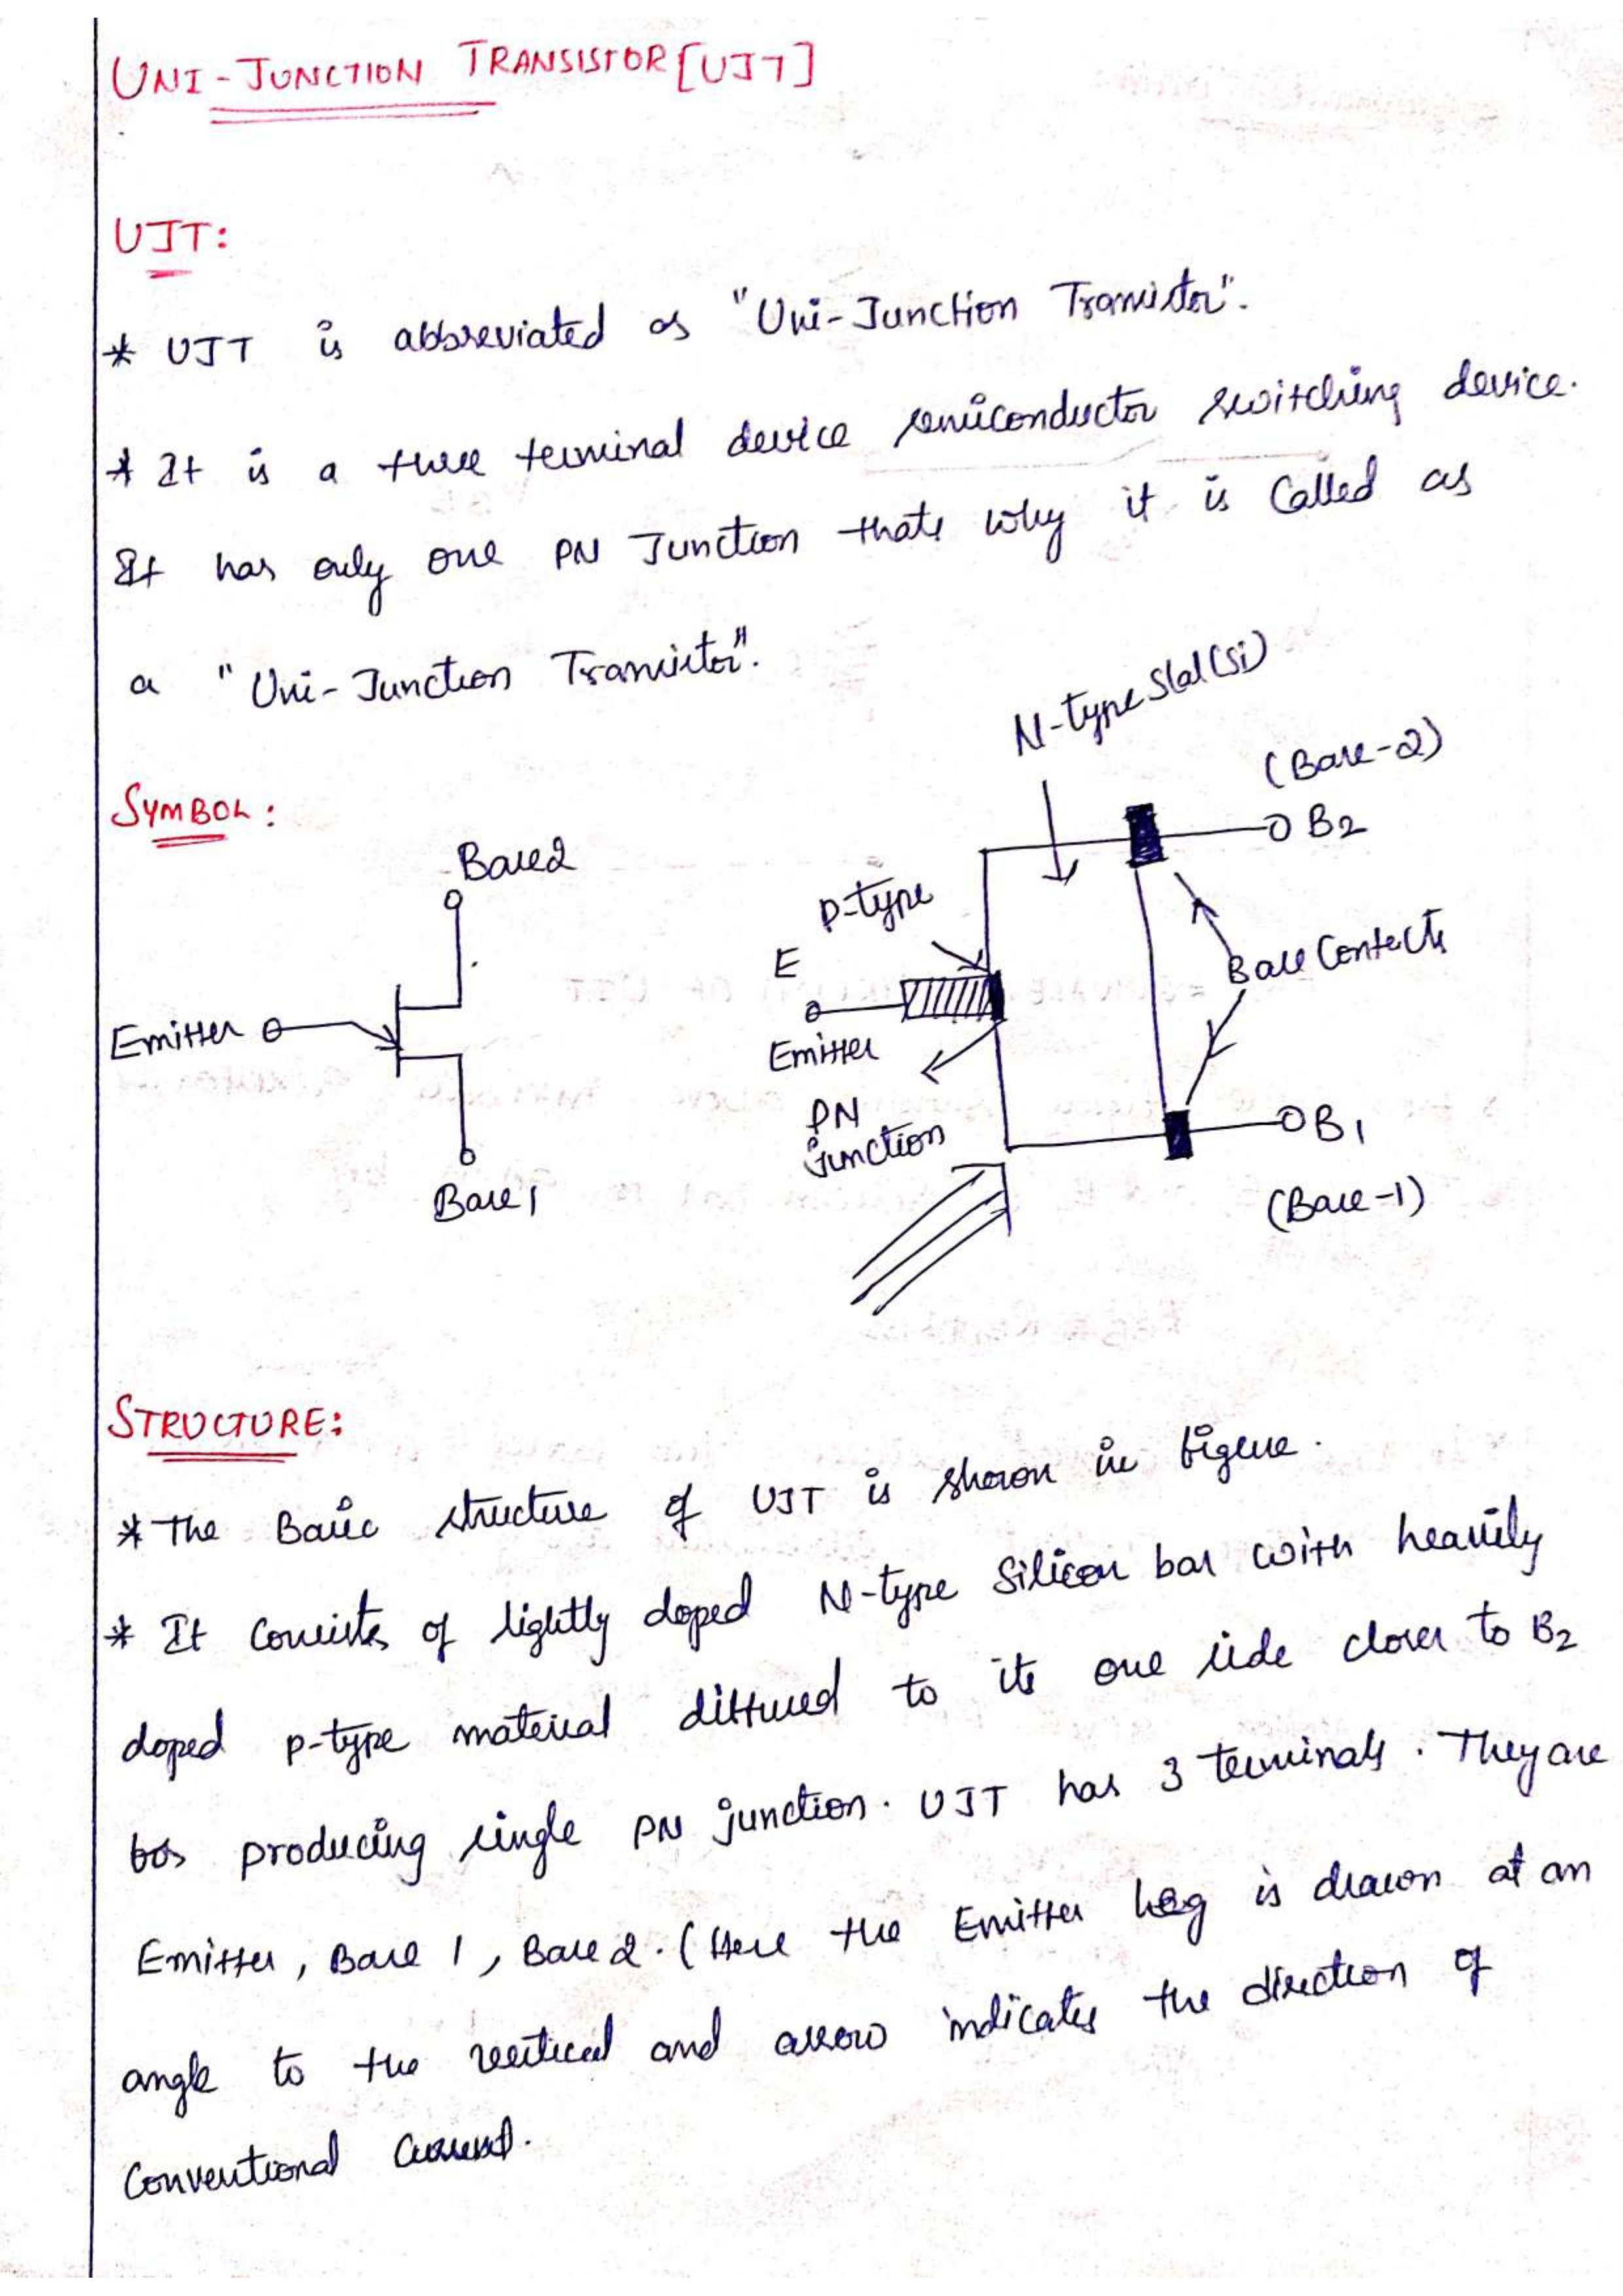 UNI-JUNCTION TRANSISTOR [UJT]
UJT:
* UJT is abbreviated as "Uni-Junction Transistor".
* It is a three terminal device semiconductor switching device.
It has only one PN Junction thats why it is Called as
a "Uni-Junction Transistor".
N-type Slal (Si)
SYMBOL:
(Base-2)
B2
Base2
P-type
E
Base Contects
Emitter
Emitter
PN
junction
B1
Base1
(Base-1)
STRUCTURE:
* The Basic structure of UJT is shown in figure.
* It Consists of lightly doped N-type Silicon bar with heavily
doped p-type material diffused to its one side closer to B2
for producing single PN junction. UJT has 3 terminals. They are
Emitter, Base 1, Base 2. (Here the Emitter leg is drawn at an
angle to the vertical and arrow indicates the direction of
Conventional Current.